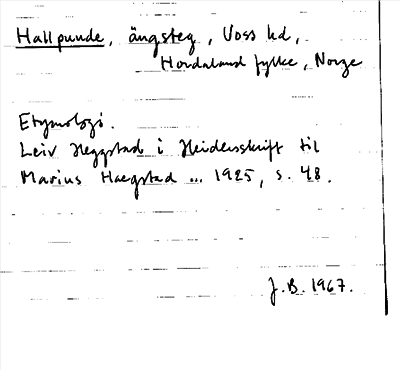 Hallpunde, ängsteg, Voss hd,
Hordaland fylke, Norge
Etymologi.
Leiv Heggstad i Heidersskrift til
Marius Hægstad ... 1925, s. 48.
J.B. 1967.